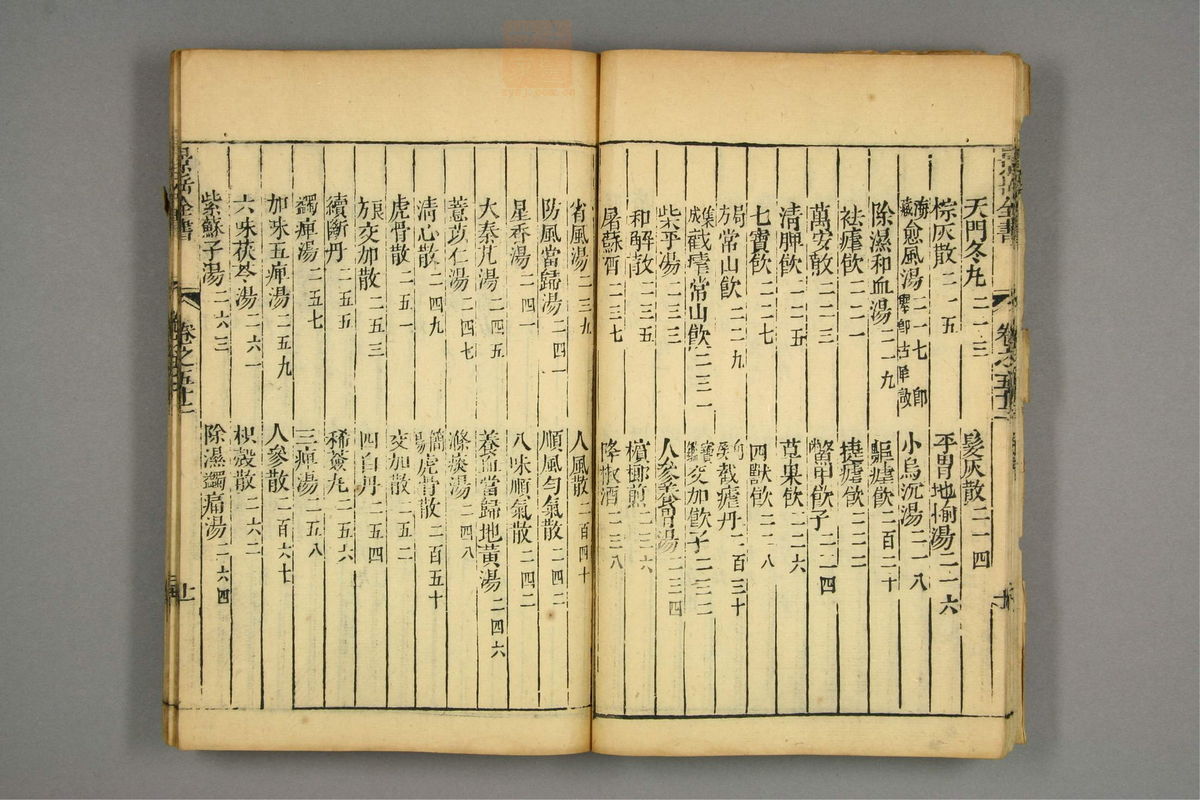 天門冬丸二一三　髮灰散二一四
椶灰散二一五　平胃地榆湯二一六
濟衆愈風湯二一七 即古單散　小烏沉湯二一八
除濕和血湯二一九　驅瘧飲二百二十
祛瘧飲二二一　捷瘧飲二二二
萬安散二二三　鱉甲飲子二二四
清脾飲二二五　草果飲二二六
七寶飲二二七　四獸飲二二八
局方常山飲二二九　截瘧丹二百三十
集成截瘧常山飲二三一　交加飲子二三二
柴平湯二三三　人參養胃湯二三四
和解散二三五　檳榔煎二三六
屠蘇酒二三七　降椒酒二三八
省風湯二三九　人風散二百四十
防風當歸湯二四一　順風勻氣散二四二
星香湯二四一　八味順氣散二四二
大秦艽湯二四五　養血當歸地黃湯二四六
薏苡仁湯二四七　滌痰湯二四八
清心散二四九　虎骨散二百五十
虎骨散二五一　交加散二五二
交加散二五三　四白丹二五四
續斷丹二五五　稀薟丸二五六
蠲痺湯二五七　三痺湯二五八
加味五痺湯二五九　人參散二百六七
六味茯苓湯二六一　枳殼散二六二
紫蘇子湯二六三　除濕蠲痛湯二六四
景岳全書　卷之五十二